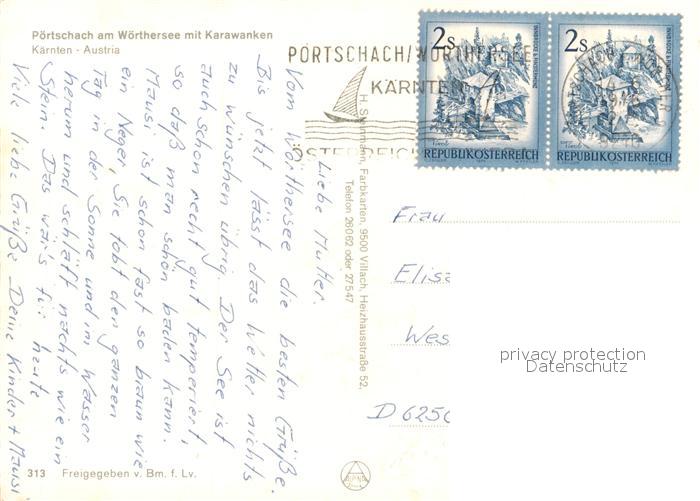 Pörtschach am Wörthersee mit Karawanken
Kärnten - Austria
PÖRTSCHACH/WÖRTHERSEE
KÄRNTEN
ÖSTERREICH
2s
2s
REPUBLIK ÖSTERREICH
REPUBLIK ÖSTERREICH
Liebe Mutter.
Vom Wörthersee die besten Grüße.
Bis jetzt lässt das Wetter nichts
zu wünschen übrig. Der See ist
auch schon recht gut temperiert,
so daß man schön baden kann.
Mausi ist schon fast so braun wie
ein Neger, Sie tobt den ganzen
Tag in der Sonne und im Wasser
herum und schläft nachts wie ein
Stein. Das wär's für heute
Viele liebe Grüße Deine Kinder + Mausi
H. Schünmann, Farbkarten, 9500 Villach, Heizhausstraße 52,
Telefon 26062 oder 27547
Frau
Elis
Wes
D 6250
privacy protection
Datenschutz
313 Freigegeben v. Bm. f. Lv.